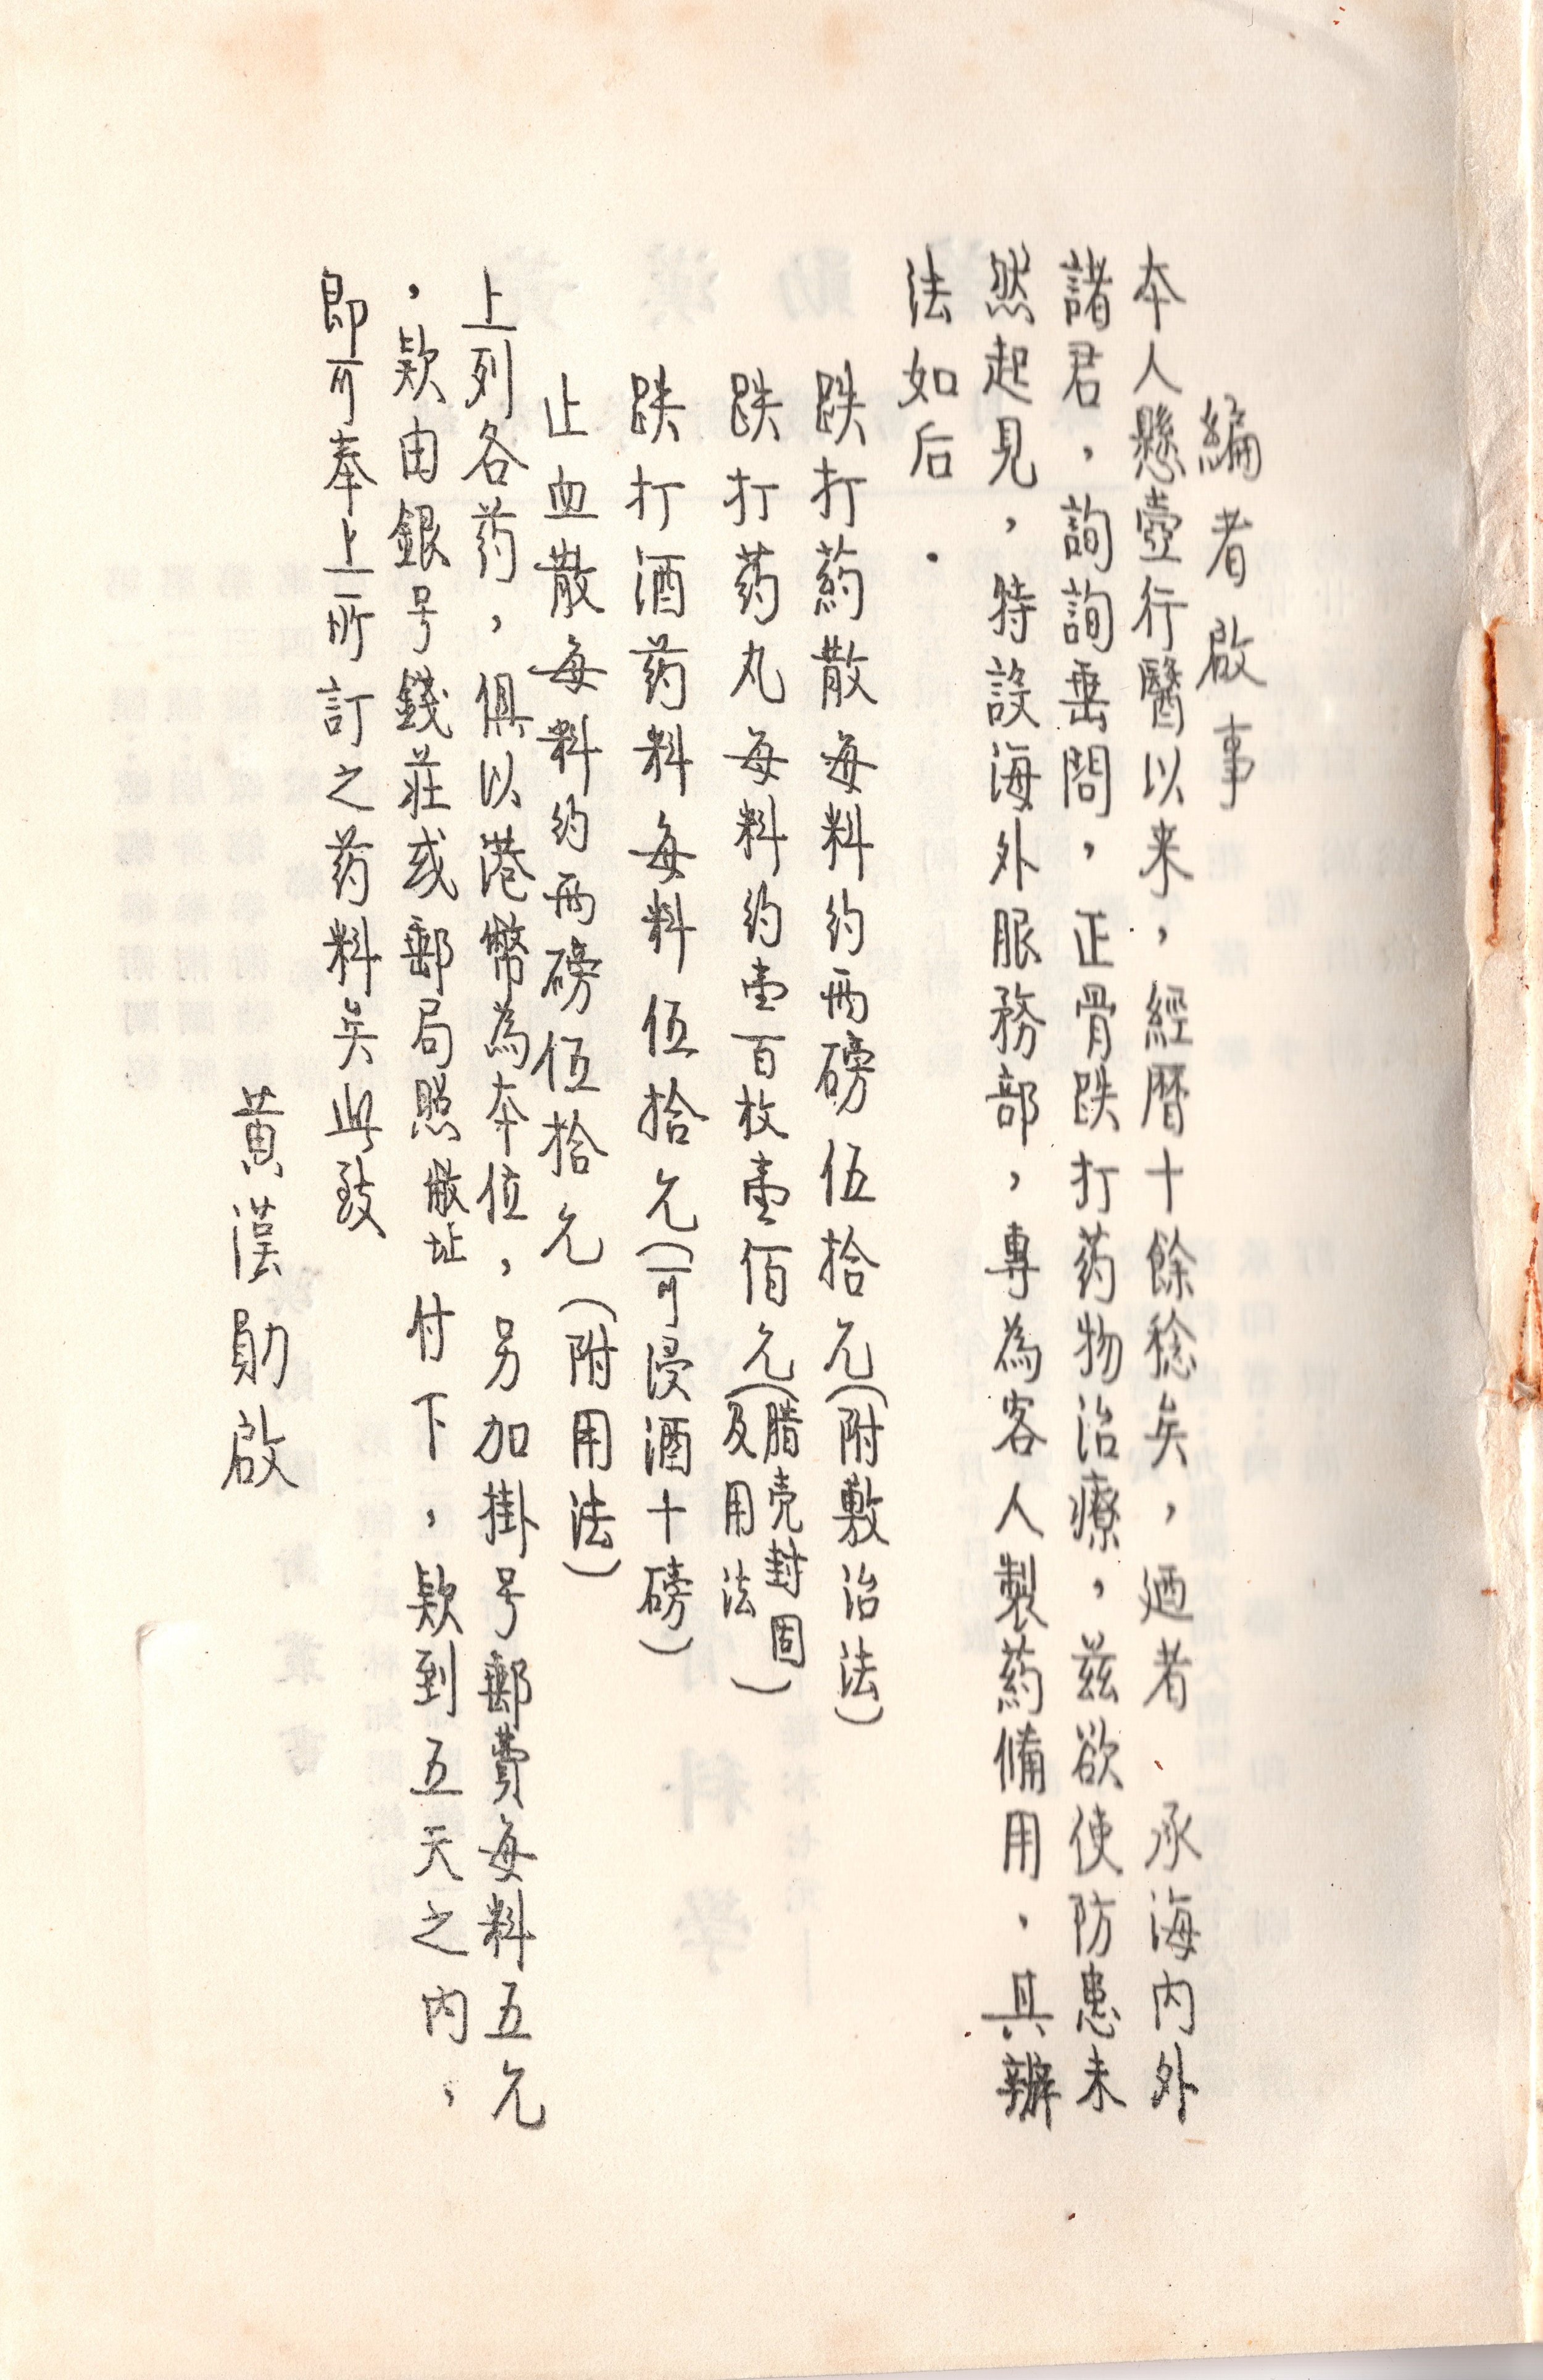 編者啟事
本人懸壺行醫以来，經曆十餘稔矣，迺者　承海内外
諸君，詢詢垂問，正骨跌打药物治療，兹欲使防患未
然起見，特設海外服務部，專為客人製葯偹用．其辦
法如后．
跌打葯散每料约両磅伍拾元（附敷治法）
跌打药丸每料约壹百枚壹佰元（腊壳封固及用法）
跌打酒药料每料伍拾元（可浸酒十磅）
止血散每料约両磅伍拾元（附用法）
上列各药，俱以港幣為本位，另加掛号郵費每料五元
，欵由銀号錢莊或郵局照敝址付下，欵到五天之内，
即可奉上所訂之药料矣此致
黄漢勛啟